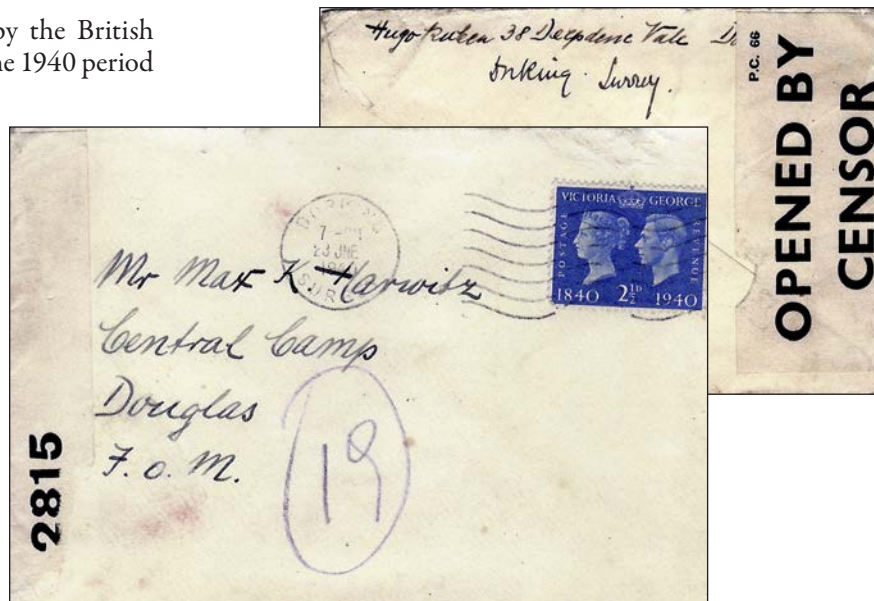 by the British
ne 1940 period
Hugo Ruben 38 Deepdene Vale Do
orking. Surrey.
P.C. 66
OPENED BY
CENSOR
DORKING
23 JNE
SUR
VICTORIA GEORGE
POSTAGE
REVENUE
1840 2½D 1940
Mr Max K Harwitz
Central Camp
Douglas
I. o. M.
19
2815